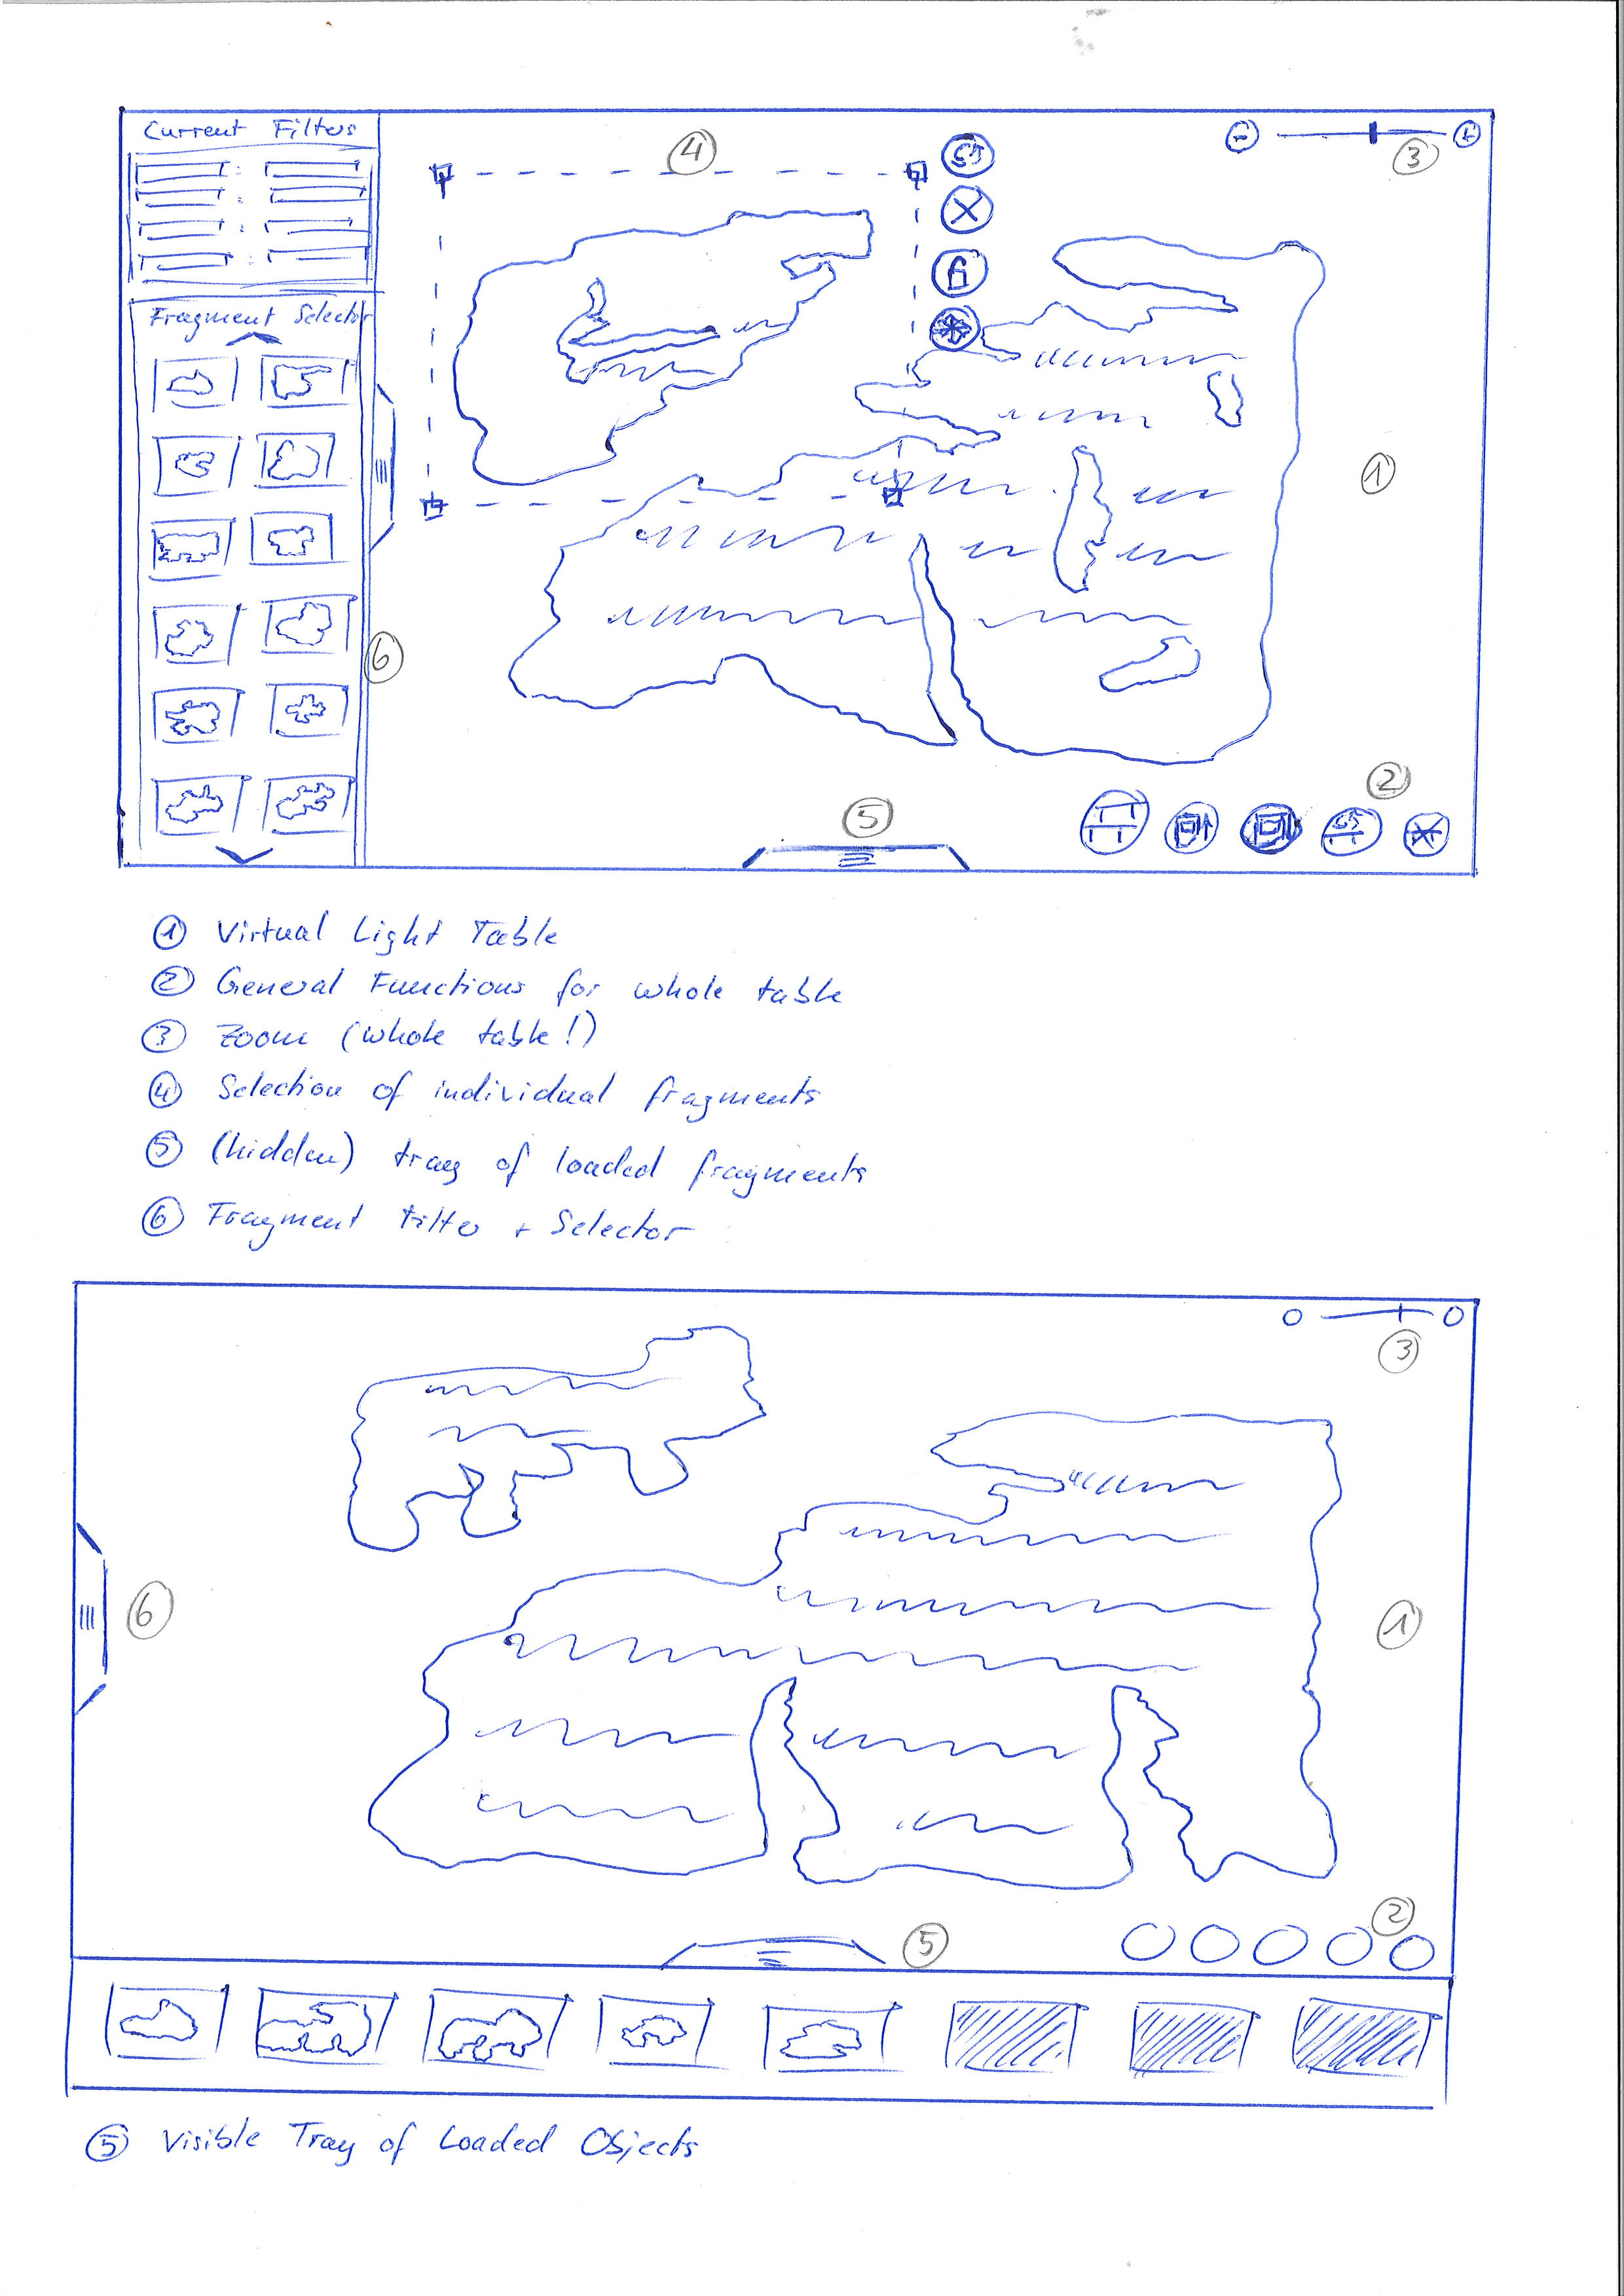 Current Filters
4
3
Fragment Selector
1
6
2
5
① Virtual Light Table
② General Functions for whole table
③ Zoom (whole table!)
④ Selection of individual fragments
⑤ (hidden) tray of loaded fragments
⑥ Fragment Filter + Selector
3
6
1
2
5
⑤ Visible Tray of Loaded Objects